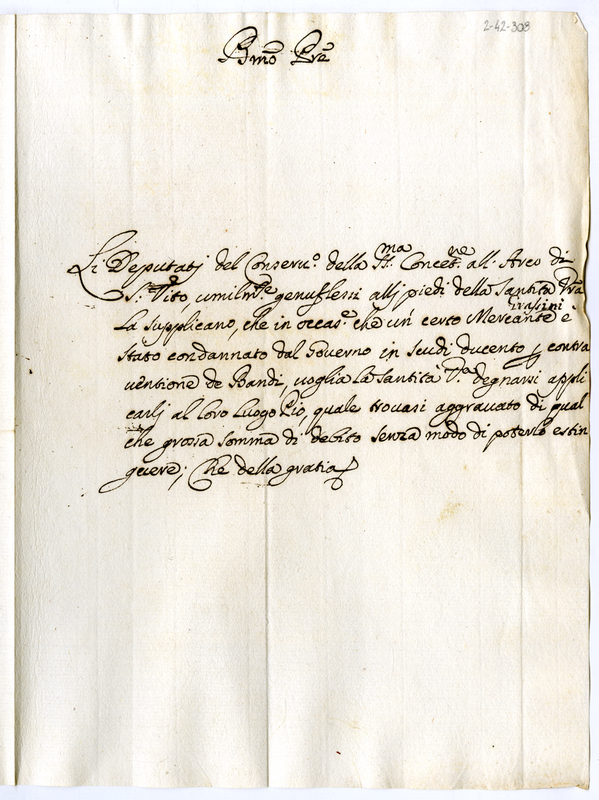 2-42-303
Bmo Pre
Li Deputatj del Conseru.o della SS.ma Concet.ne all' Arco di
S. Vito, umilm.te genuflessi allj piedi della Santità Vra
La supplicano, che in occas.e che un certo Mercante Grasini è
stato condannato dal Governo in scudi ducento p contra
uentione de Bandi, uoglia La Santità V.a degnarsi appli
carlj al loro Luogo Pio, quale trouasi aggrauato di qual
che grossa somma di debito senza modo di poterlo estin
guere; Che della gratia